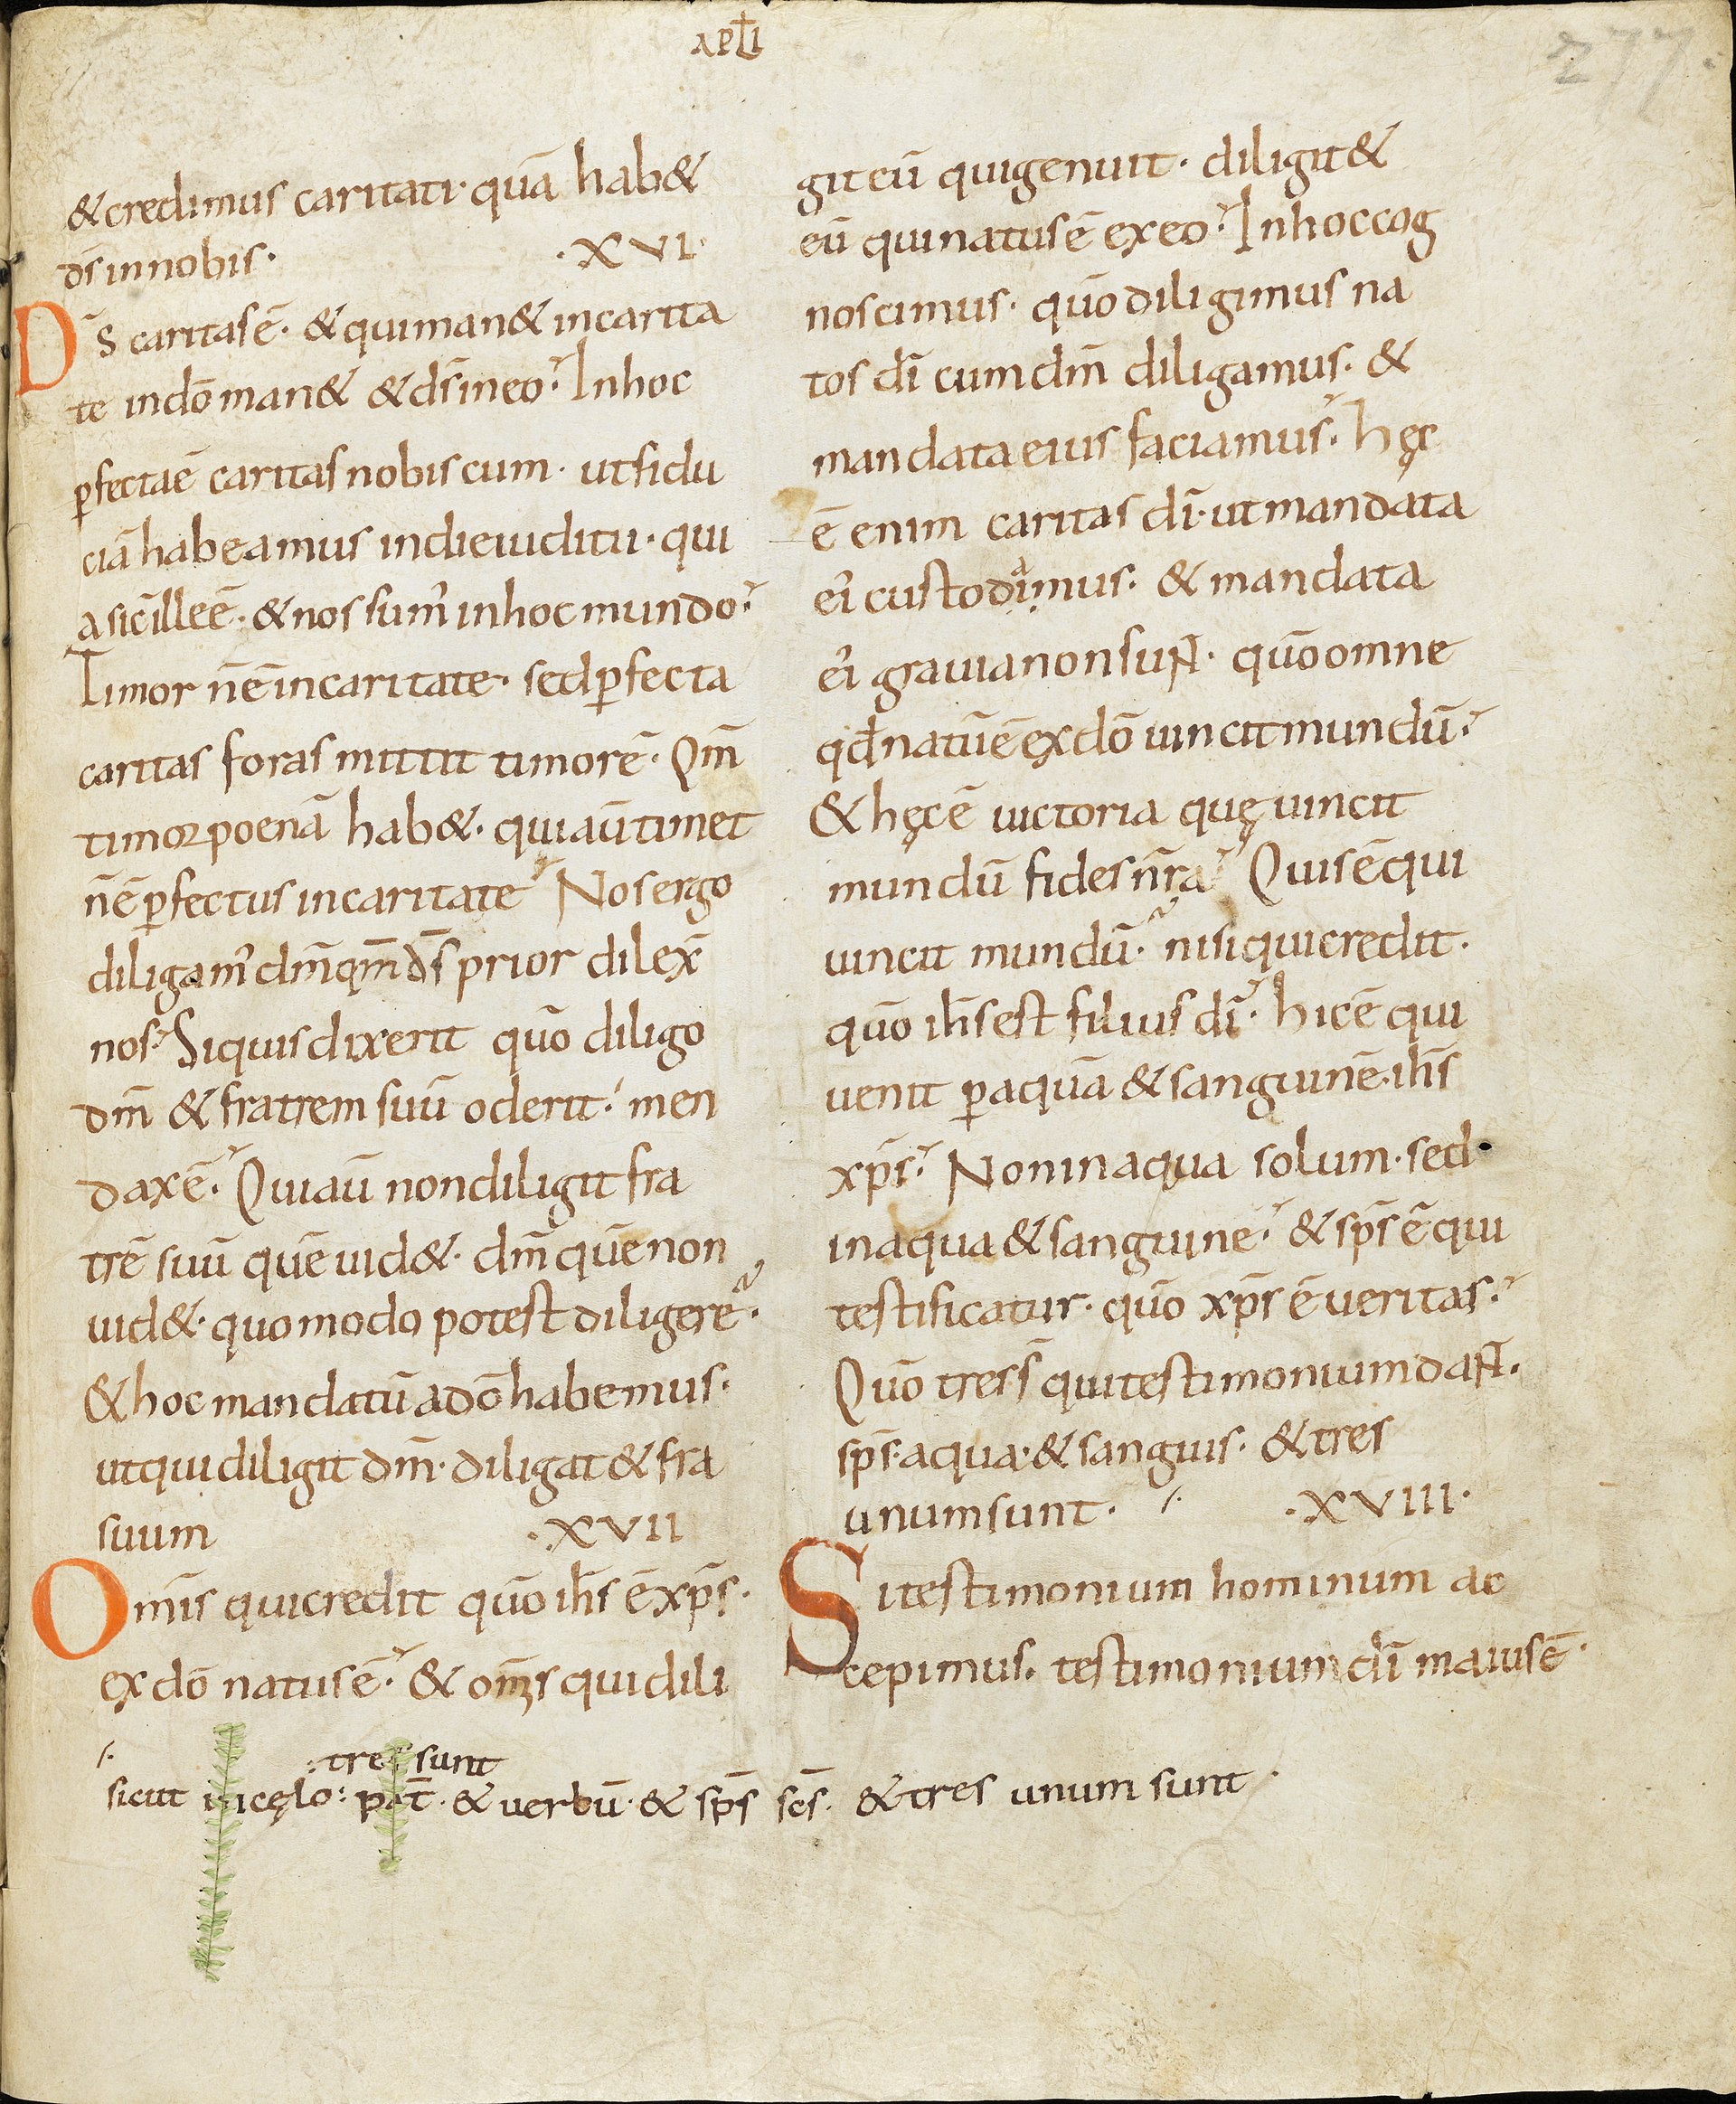 APLI
277.
& credimus caritati· quā hab&
d̄s in nobis· ·XVI·
D̄s caritas ē· & qui man& in carita
te in dō man& & d̄s in eo· In hoc
ꝑfecta ē caritas nobiscum· ut fidu
ciā habeamus in die iuditii· qui
a sic ille ē· & nos sum' in hoc mundo·
Timor n̄ ē in caritate· sed ꝑfecta
caritas foras mittit timorē· Qm̄
timor poenā hab&· qui aū timet
n̄ ē ꝑfectus in caritate Nos ergo
diligam' dm̄ qm̄ d̄s prior dilex̄
nos· Si quis dixerit quō diligo
dm̄ & fratrem suū oderit· men
dax ē· Qui aū non diligit fra
trē suū quē uid&· dm̄ quē non
uid&· quomodo potest diligere·
& hoc mandatū a dō habemus·
ut qui diligit dm̄· diligat & fra
suum ·XVII
Om̄is qui credit quō ih̄s ē xp̄s·
ex dō natus ē· & om̄s qui dili
git eū qui genuit· diligit &
eū qui natus ē ex eo· In hoc cog
noscimus· quō diligimus na
tos dī cum dm̄ diligamus· &
mandata eius faciamus· hęc
ē enim caritas dī· ut mandata
ei' custodiamus· & mandata
ei' grauia non sunt· quō omne
qd̄ natū ē ex dō uincit mundū·
& hęc ē uictoria quę uincit
mundū fides nr̄a Quis ē qui
uincit mundū· nisi qui credit·
quō ih̄s est filius dī· hic ē qui
uenit ꝑ aquā & sanguinē· ih̄s
xp̄s· Non in aqua solum· sed·
in aqua & sanguine· & sp̄s ē qui
testificatur· quō xp̄s ē ueritas·
Quō tres s̄ qui testimonium dant·
sp̄s· aqua· & sanguis· & tres
unum sunt· /· ·XVIII·
Si testimonium hominum ac
cepimus· testimonium dī maius ē·
/· : tres sunt
sicut in cęlo: pat̄· & uerbū· & sp̄s sc̄s· & tres unum sunt·